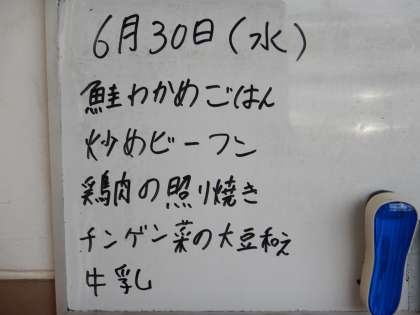 6月30日(水)
鮭わかめごはん
炒めビーフン
鶏肉の照り焼き
チンゲン菜の大豆和え
牛乳